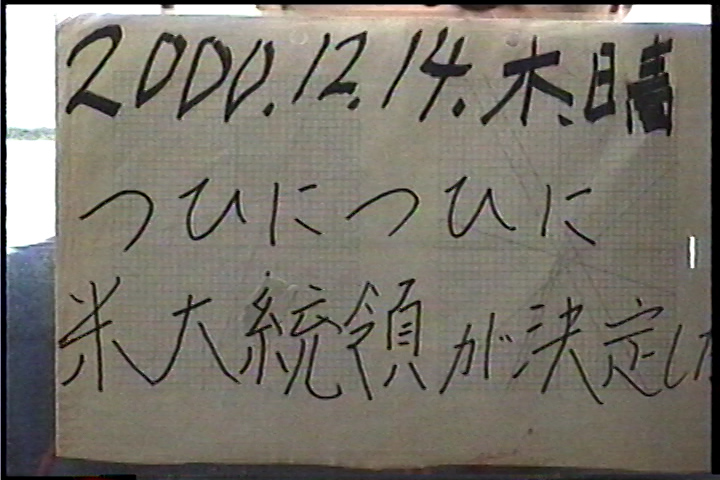 2000.12.14.木.晴
つひにつひに
米大統領が決定した